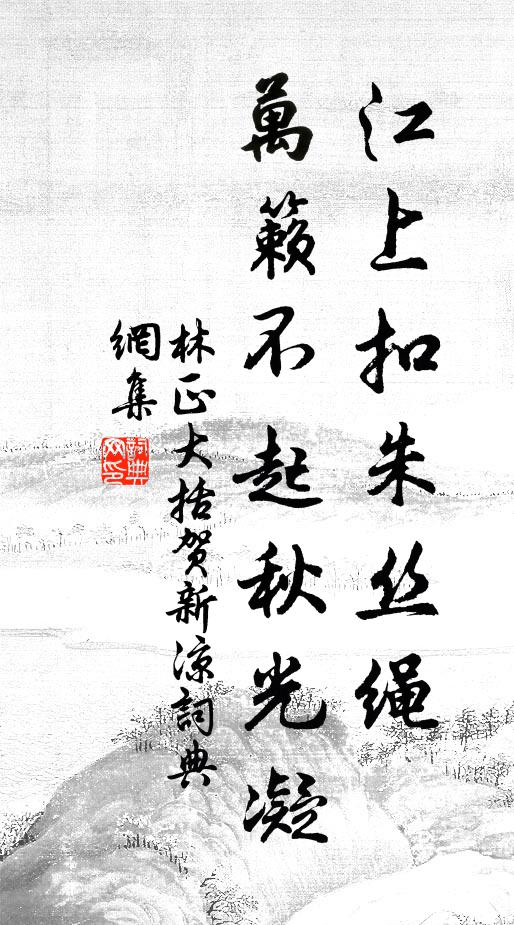 江上扣朱丝绳
萬籟不起秋光凝
林正大括贺新凉詞典
網集
詞典网印